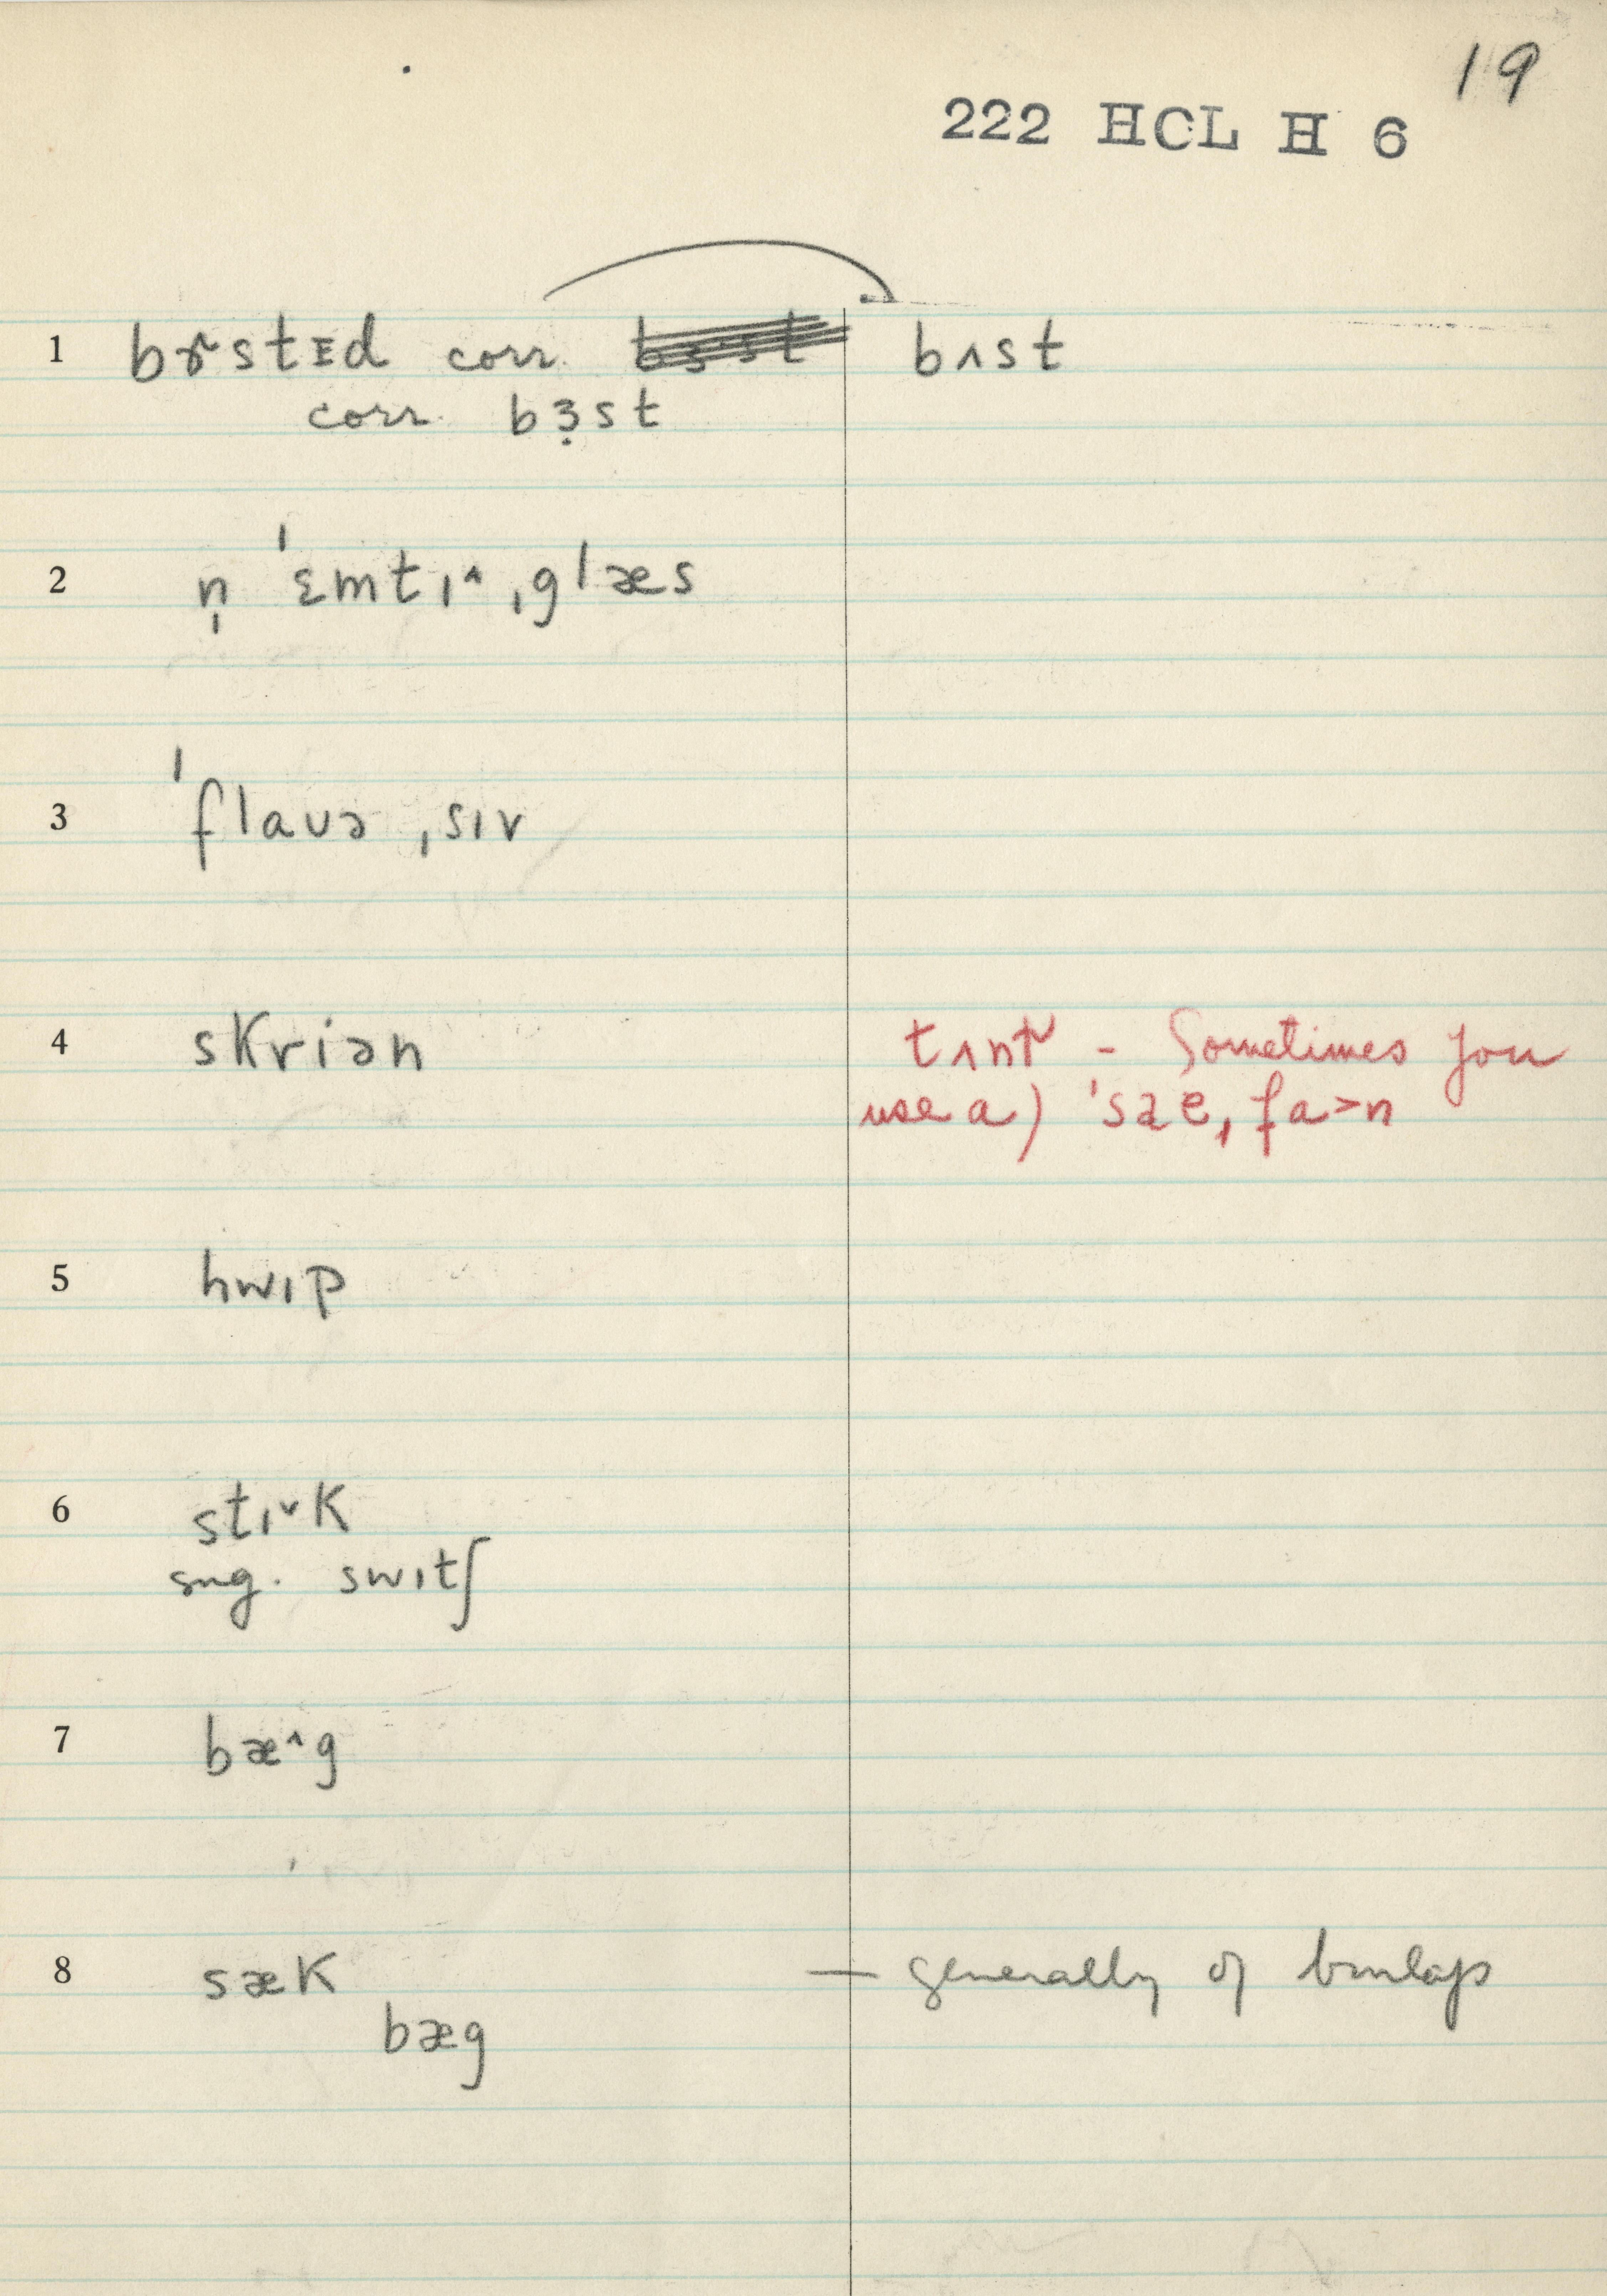 19
222 HCL H 6
1 bɚstᴇd corr. bʌst
corr. bɜ̣st
2 n̩ ˈɛmtɪ˄ ˌglæs
3 ˈflaʊə ˌsɪv
4 skriən tʌntʳ - Sometimes you
use a) ˈsæe ˌfa>n
5 hwɪp
6 stɪ˅k
sug. swɪtʃ
7 bæ˄g
8 sæk — generally of burlap
bæg